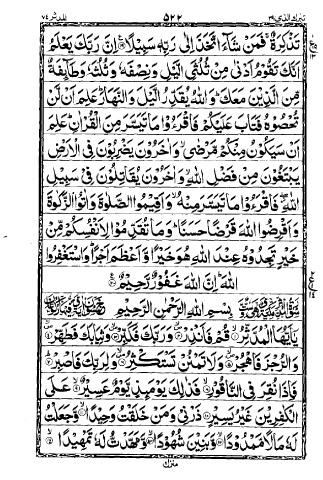 تبارك الذي ٢٩ ٥٢٢ المدثر ٧٤
تَذْكِرَةٌ فَمَنْ شَآءَ اتَّخَذَ اِلٰى رَبِّهٖ سَبِيْلًا اِنَّ رَبَّكَ يَعْلَمُ
اَنَّكَ تَقُوْمُ اَدْنٰى مِنْ ثُلُثَيِ الَّيْلِ وَنِصْفَهٗ وَثُلُثَهٗ وَطَآئِفَةٌ
مِّنَ الَّذِيْنَ مَعَكَ وَاللّٰهُ يُقَدِّرُ الَّيْلَ وَالنَّهَارَ عَلِمَ اَنْ لَّنْ
تُحْصُوْهُ فَتَابَ عَلَيْكُمْ فَاقْرَءُوْا مَا تَيَسَّرَ مِنَ الْقُرْاٰنِ عَلِمَ
اَنْ سَيَكُوْنُ مِنْكُمْ مَّرْضٰى وَاٰخَرُوْنَ يَضْرِبُوْنَ فِى الْاَرْضِ
يَبْتَغُوْنَ مِنْ فَضْلِ اللّٰهِ وَاٰخَرُوْنَ يُقَاتِلُوْنَ فِيْ سَبِيْلِ
اللّٰهِ فَاقْرَءُوْا مَا تَيَسَّرَ مِنْهُ وَاَقِيْمُوا الصَّلٰوةَ وَاٰتُوا الزَّكٰوةَ
وَاَقْرِضُوا اللّٰهَ قَرْضًا حَسَنًا وَمَا تُقَدِّمُوْا لِاَنْفُسِكُمْ مِّنْ
خَيْرٍ تَجِدُوْهُ عِنْدَ اللّٰهِ هُوَ خَيْرًا وَّاَعْظَمَ اَجْرًا وَاسْتَغْفِرُوا
اللّٰهَ اِنَّ اللّٰهَ غَفُوْرٌ رَّحِيْمٌ
بِسْمِ اللّٰهِ الرَّحْمٰنِ الرَّحِيْمِ
يٰٓاَيُّهَا الْمُدَّثِّرُ ١ قُمْ فَاَنْذِرْ ٢ وَرَبَّكَ فَكَبِّرْ ٣ وَثِيَابَكَ فَطَهِّرْ ٤
وَالرُّجْزَ فَاهْجُرْ ٥ وَلَا تَمْنُنْ تَسْتَكْثِرُ ٦ وَلِرَبِّكَ فَاصْبِرْ ٧
فَاِذَا نُقِرَ فِى النَّاقُوْرِ ٨ فَذٰلِكَ يَوْمَئِذٍ يَّوْمٌ عَسِيْرٌ ٩ عَلَى
الْكٰفِرِيْنَ غَيْرُ يَسِيْرٍ ١٠ ذَرْنِيْ وَمَنْ خَلَقْتُ وَحِيْدًا ١١ وَّجَعَلْتُ
لَهٗ مَالًا مَّمْدُوْدًا ١٢ وَّبَنِيْنَ شُهُوْدًا ١٣ وَّمَهَّدْتُّ لَهٗ تَمْهِيْدًا ١٤